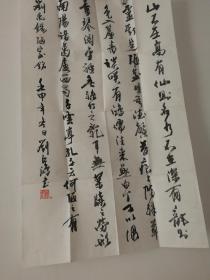 山不在高有仙则名水不在深有龍则
靈斯是陋室惟吾德馨苔痕上階緑草
色入簾青谈笑有鴻儒往来無白丁可以调
素琴阅金经無丝竹之乱耳無案牍之劳形
南陽諸葛廬西蜀子雲亭孔子云何陋之有
刘禹锡陋室铭 壬申年冬日 劉